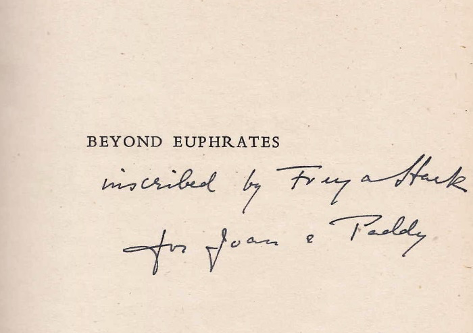 BEYOND EUPHRATES
inscribed by Freya Stark
for Joan & Paddy